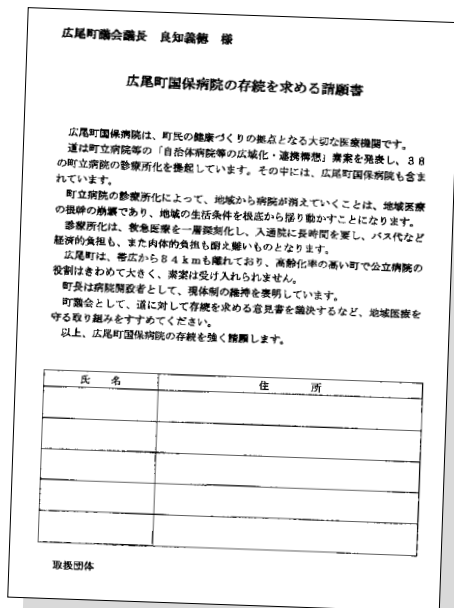 広尾町議会議長　良知義徳　様
広尾町国保病院の存続を求める請願書
広尾町国保病院は、町民の健康づくりの拠点となる大切な医療機関です。
道は町立病院等の「自治体病院等の広域化・連携構想」素案を発表し、３８
の町立病院の診療所化を提起しています。その中には、広尾町国保病院も含ま
れています。
町立病院の診療所化によって、地域から病院が消えていくことは、地域医療
の根幹の崩壊であり、地域の生活条件を根底から揺り動かすことになります。
診療所化は、救急医療を一層深刻化し、入通院に長時間を要し、バス代など
経済的負担も、また肉体的負担も耐え難いものとなります。
広尾町は、帯広から８４ｋｍも離れており、高齢化率の高い町で公立病院の
役割はきわめて大きく、素案は受け入れられません。
町長は病院開設者として、現体制の維持を表明しています。
町議会として、道に対して存続を求める意見書を議決するなど、地域医療を
守る取り組みをすすめてください。
以上、広尾町国保病院の存続を強く請願します。
氏　名　住　所
取扱団体